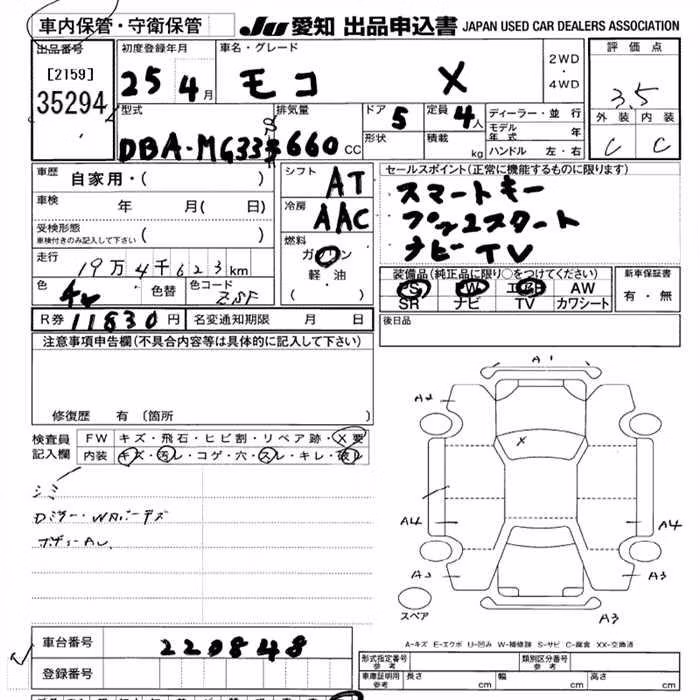 車内保管・守衛保管
JU 愛知 出品申込書 JAPAN USED CAR DEALERS ASSOCIATION
出品番号
[2159]
35294
初度登録年月
25 4月
車名・グレード
モコ X
2WD
・
4WD
評価点
3.5
外装 内装
C C
型式
DBA-MG33S
排気量
660 CC
ドア 5
形状
定員 4人
積載 kg
ディーラー・並行
モデル年式 年
ハンドル 左・右
車歴 自家用・( )
車検 年 月( 日)
受検形態
車検付きのみ記入して下さい ( )
走行 19万4千623km
色
色替
色コード
R券 11830円 名変通知期限 月 日
シフト AT
冷房 AAC
燃料
ガソリン
軽・油
( )
セールスポイント(正常に機能するものに限ります)
スマートキー
プッシュスタート
ナビ TV
装備品(純正品に限り○をつけてください)
PS PW エアB AW
SR ナビ TV カワシート
新車保証書
有・無
後日品
注意事項申告欄(不具合内容等は具体的に記入して下さい)
修復歴 有 〔箇所 〕
検査員
記入欄
FW キズ・飛石・ヒビ割・リペア跡・X要
内装 キズ・汚レ・コゲ・穴・スレ・キレ・破レ
シミ
A1
A2
X
A4
A4
A2
A3
A3
スペア
A-キズ E-エクボ U-凹み W-補修跡 S-サビ C-腐食 XX-交換済
車台番号 220848
登録番号
形式指定番号
参考
類別区分番号
参考
車庫証明用
参考
長さ cm 幅 cm 高さ cm